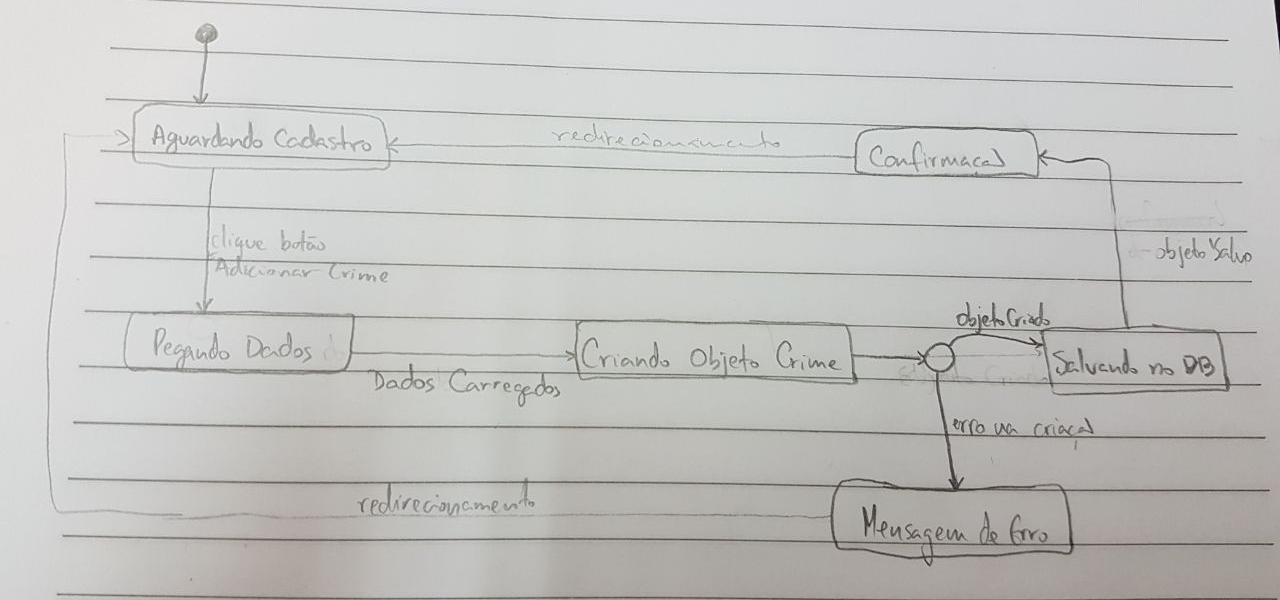 Aguardando Cadastro
redirecionamento
Confirmaçaõ
clique botão
Adicionar Crime
objeto Salvo
objeto Criado
Pegando Dados
Criando Objeto Crime
Salvando no DB
Dados Carregados
erro na criaçaõ
redirecionamento
Mensagem de Erro